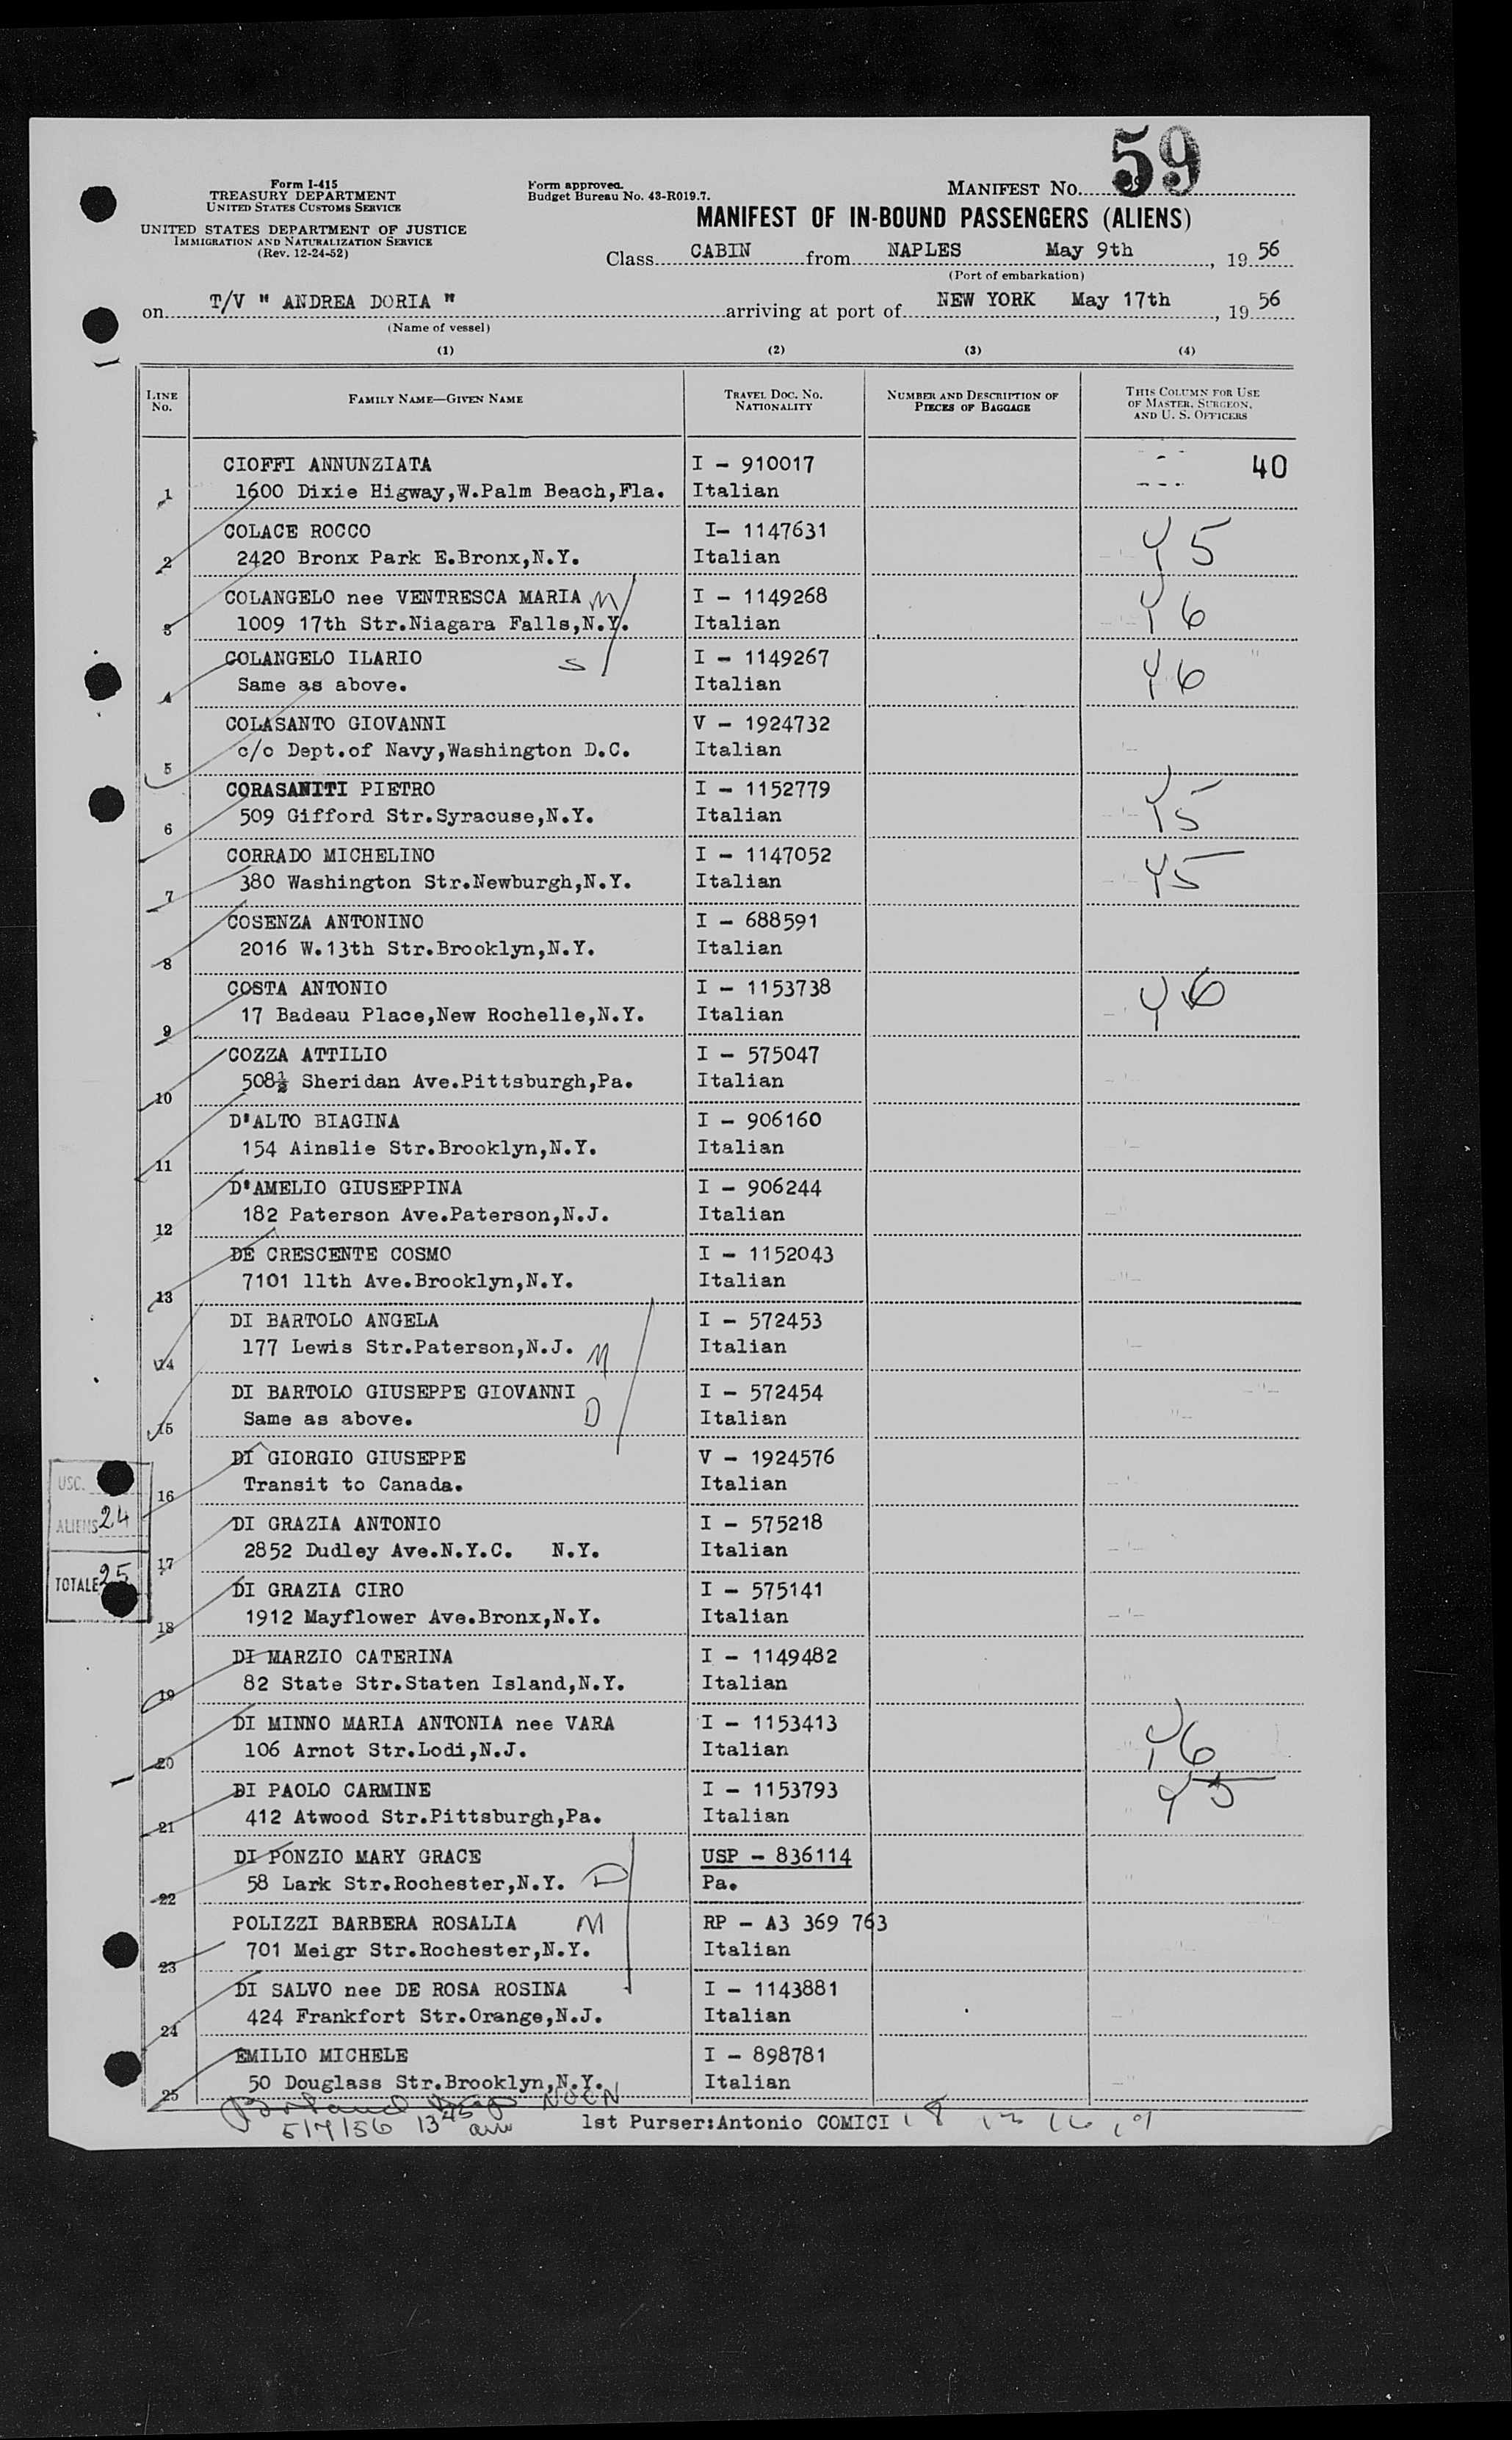 59
Form I-415
TREASURY DEPARTMENT
UNITED STATES CUSTOMS SERVICE
UNITED STATES DEPARTMENT OF JUSTICE
IMMIGRATION AND NATURALIZATION SERVICE
(Rev. 12-24-52)
Form approved.
Budget Bureau No. 43-R019.7.
MANIFEST NO.
MANIFEST OF IN-BOUND PASSENGERS (ALIENS)
Class CABIN from NAPLES May 9th, 19 56
(Port of embarkation)
on T/V " ANDREA DORIA " arriving at port of NEW YORK May 17th, 19 56
(Name of vessel)
(1) (2) (3) (4)
LINE No. FAMILY NAME—GIVEN NAME TRAVEL DOC. NO. NATIONALITY NUMBER AND DESCRIPTION OF PIECES OF BAGGAGE THIS COLUMN FOR USE OF MASTER, SURGEON, AND U. S. OFFICERS
CIOFFI ANNUNZIATA I - 910017 40
1 1600 Dixie Higway,W.Palm Beach,Fla. Italian
COLACE ROCCO I- 1147631 Y5
2 2420 Bronx Park E.Bronx,N.Y. Italian
COLANGELO nee VENTRESCA MARIA M I - 1149268 Y6
3 1009 17th Str.Niagara Falls,N.Y. Italian
COLANGELO ILARIO S I - 1149267 Y6
4 Same as above. Italian
COLASANTO GIOVANNI V - 1924732
5 c/o Dept.of Navy,Washington D.C. Italian
CORASANITI PIETRO I - 1152779 Y5
6 509 Gifford Str.Syracuse,N.Y. Italian
CORRADO MICHELINO I - 1147052 Y5
7 380 Washington Str.Newburgh,N.Y. Italian
COSENZA ANTONINO I - 688591
8 2016 W.13th Str.Brooklyn,N.Y. Italian
COSTA ANTONIO I - 1153738 Y6
9 17 Badeau Place,New Rochelle,N.Y. Italian
COZZA ATTILIO I - 575047
10 508½ Sheridan Ave.Pittsburgh,Pa. Italian
D'ALTO BIAGINA I - 906160
11 154 Ainslie Str.Brooklyn,N.Y. Italian
D'AMELIO GIUSEPPINA I - 906244
12 182 Paterson Ave.Paterson,N.J. Italian
DE CRESCENTE COSMO I - 1152043
13 7101 11th Ave.Brooklyn,N.Y. Italian
DI BARTOLO ANGELA I - 572453
14 177 Lewis Str.Paterson,N.J. M Italian
DI BARTOLO GIUSEPPE GIOVANNI I - 572454
15 Same as above. D Italian
DI GIORGIO GIUSEPPE V - 1924576
16 Transit to Canada. Italian
USC.
ALIENS 24
TOTALE 25
DI GRAZIA ANTONIO I - 575218
17 2852 Dudley Ave.N.Y.C. N.Y. Italian
DI GRAZIA CIRO I - 575141
18 1912 Mayflower Ave.Bronx,N.Y. Italian
DI MARZIO CATERINA I - 1149482
19 82 State Str.Staten Island,N.Y. Italian
DI MINNO MARIA ANTONIA nee VARA I - 1153413 Y6
20 106 Arnot Str.Lodi,N.J. Italian
DI PAOLO CARMINE I - 1153793 Y5
21 412 Atwood Str.Pittsburgh,Pa. Italian
DI PONZIO MARY GRACE USP - 836114
22 58 Lark Str.Rochester,N.Y. D Pa.
POLIZZI BARBERA ROSALIA M RP - A3 369 763
23 701 Meigr Str.Rochester,N.Y. Italian
DI SALVO nee DE ROSA ROSINA I - 1143881
24 424 Frankfort Str.Orange,N.J. Italian
EMILIO MICHELE I - 898781
25 50 Douglass Str.Brooklyn,N.Y. Italian
1st Purser:Antonio COMICI